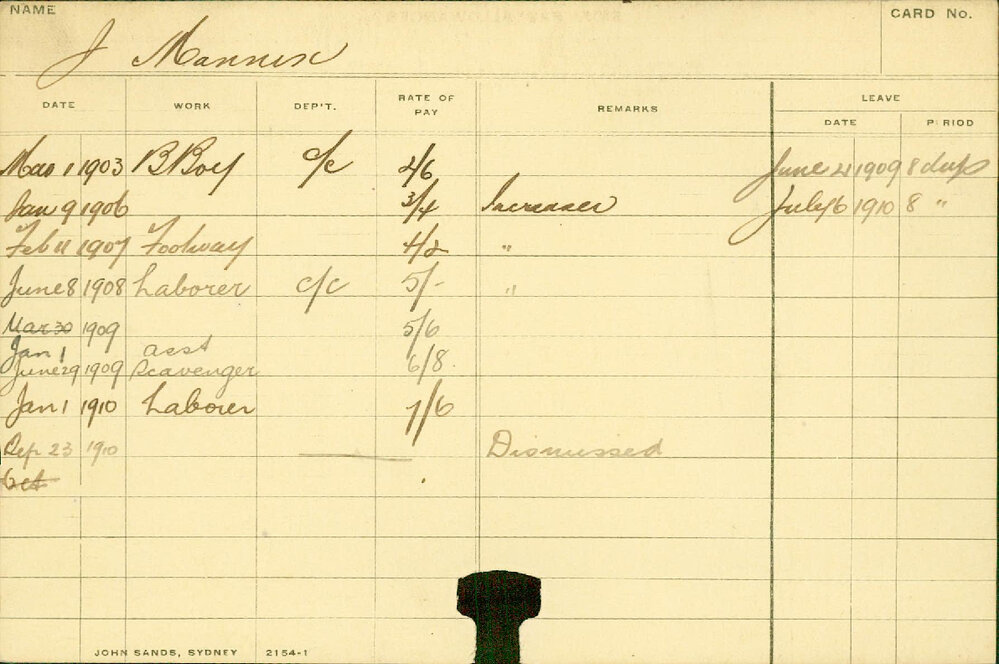 NAME
CARD No.
J Mannix
DATE WORK DEP'T. RATE OF PAY REMARKS LEAVE
DATE PERIOD
Mar 1 1903 B Boy C/C 2/6 June 21 1909 8 days
Jan 9 1906 3/4 Increase July 6 1910 8 "
Feb 11 1907 Footway 4/2 "
June 8 1908 Laborer C/C 5/- "
Mar 30 1909 5/6
Jan 1
June 29 1909 asst Scavenger 6/8
Jan 1 1910 Laborer 7/6
Sep 23 1910 Dismissed
Oct
JOHN SANDS, SYDNEY 2154-1